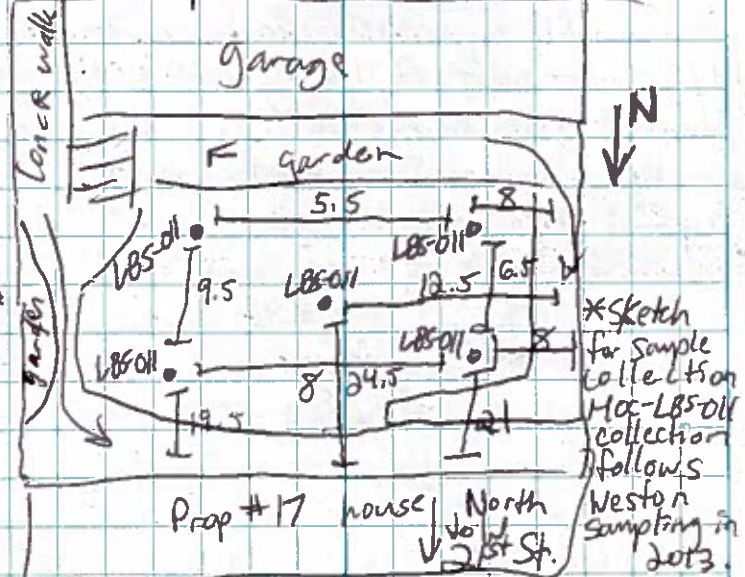 Concr walk
garage
N
garden
5.5
8
LBS-011
LBS-011
9.5
LBS-011
6.5
12.5
garden
LBS-011
LBS-011
8
8
24.5
19.5
21
*Sketch
for sample
collection
Hoc-LBS-011
collection
follows
Weston
sampling in
2013.
Prop #17 house North
to
21st St.